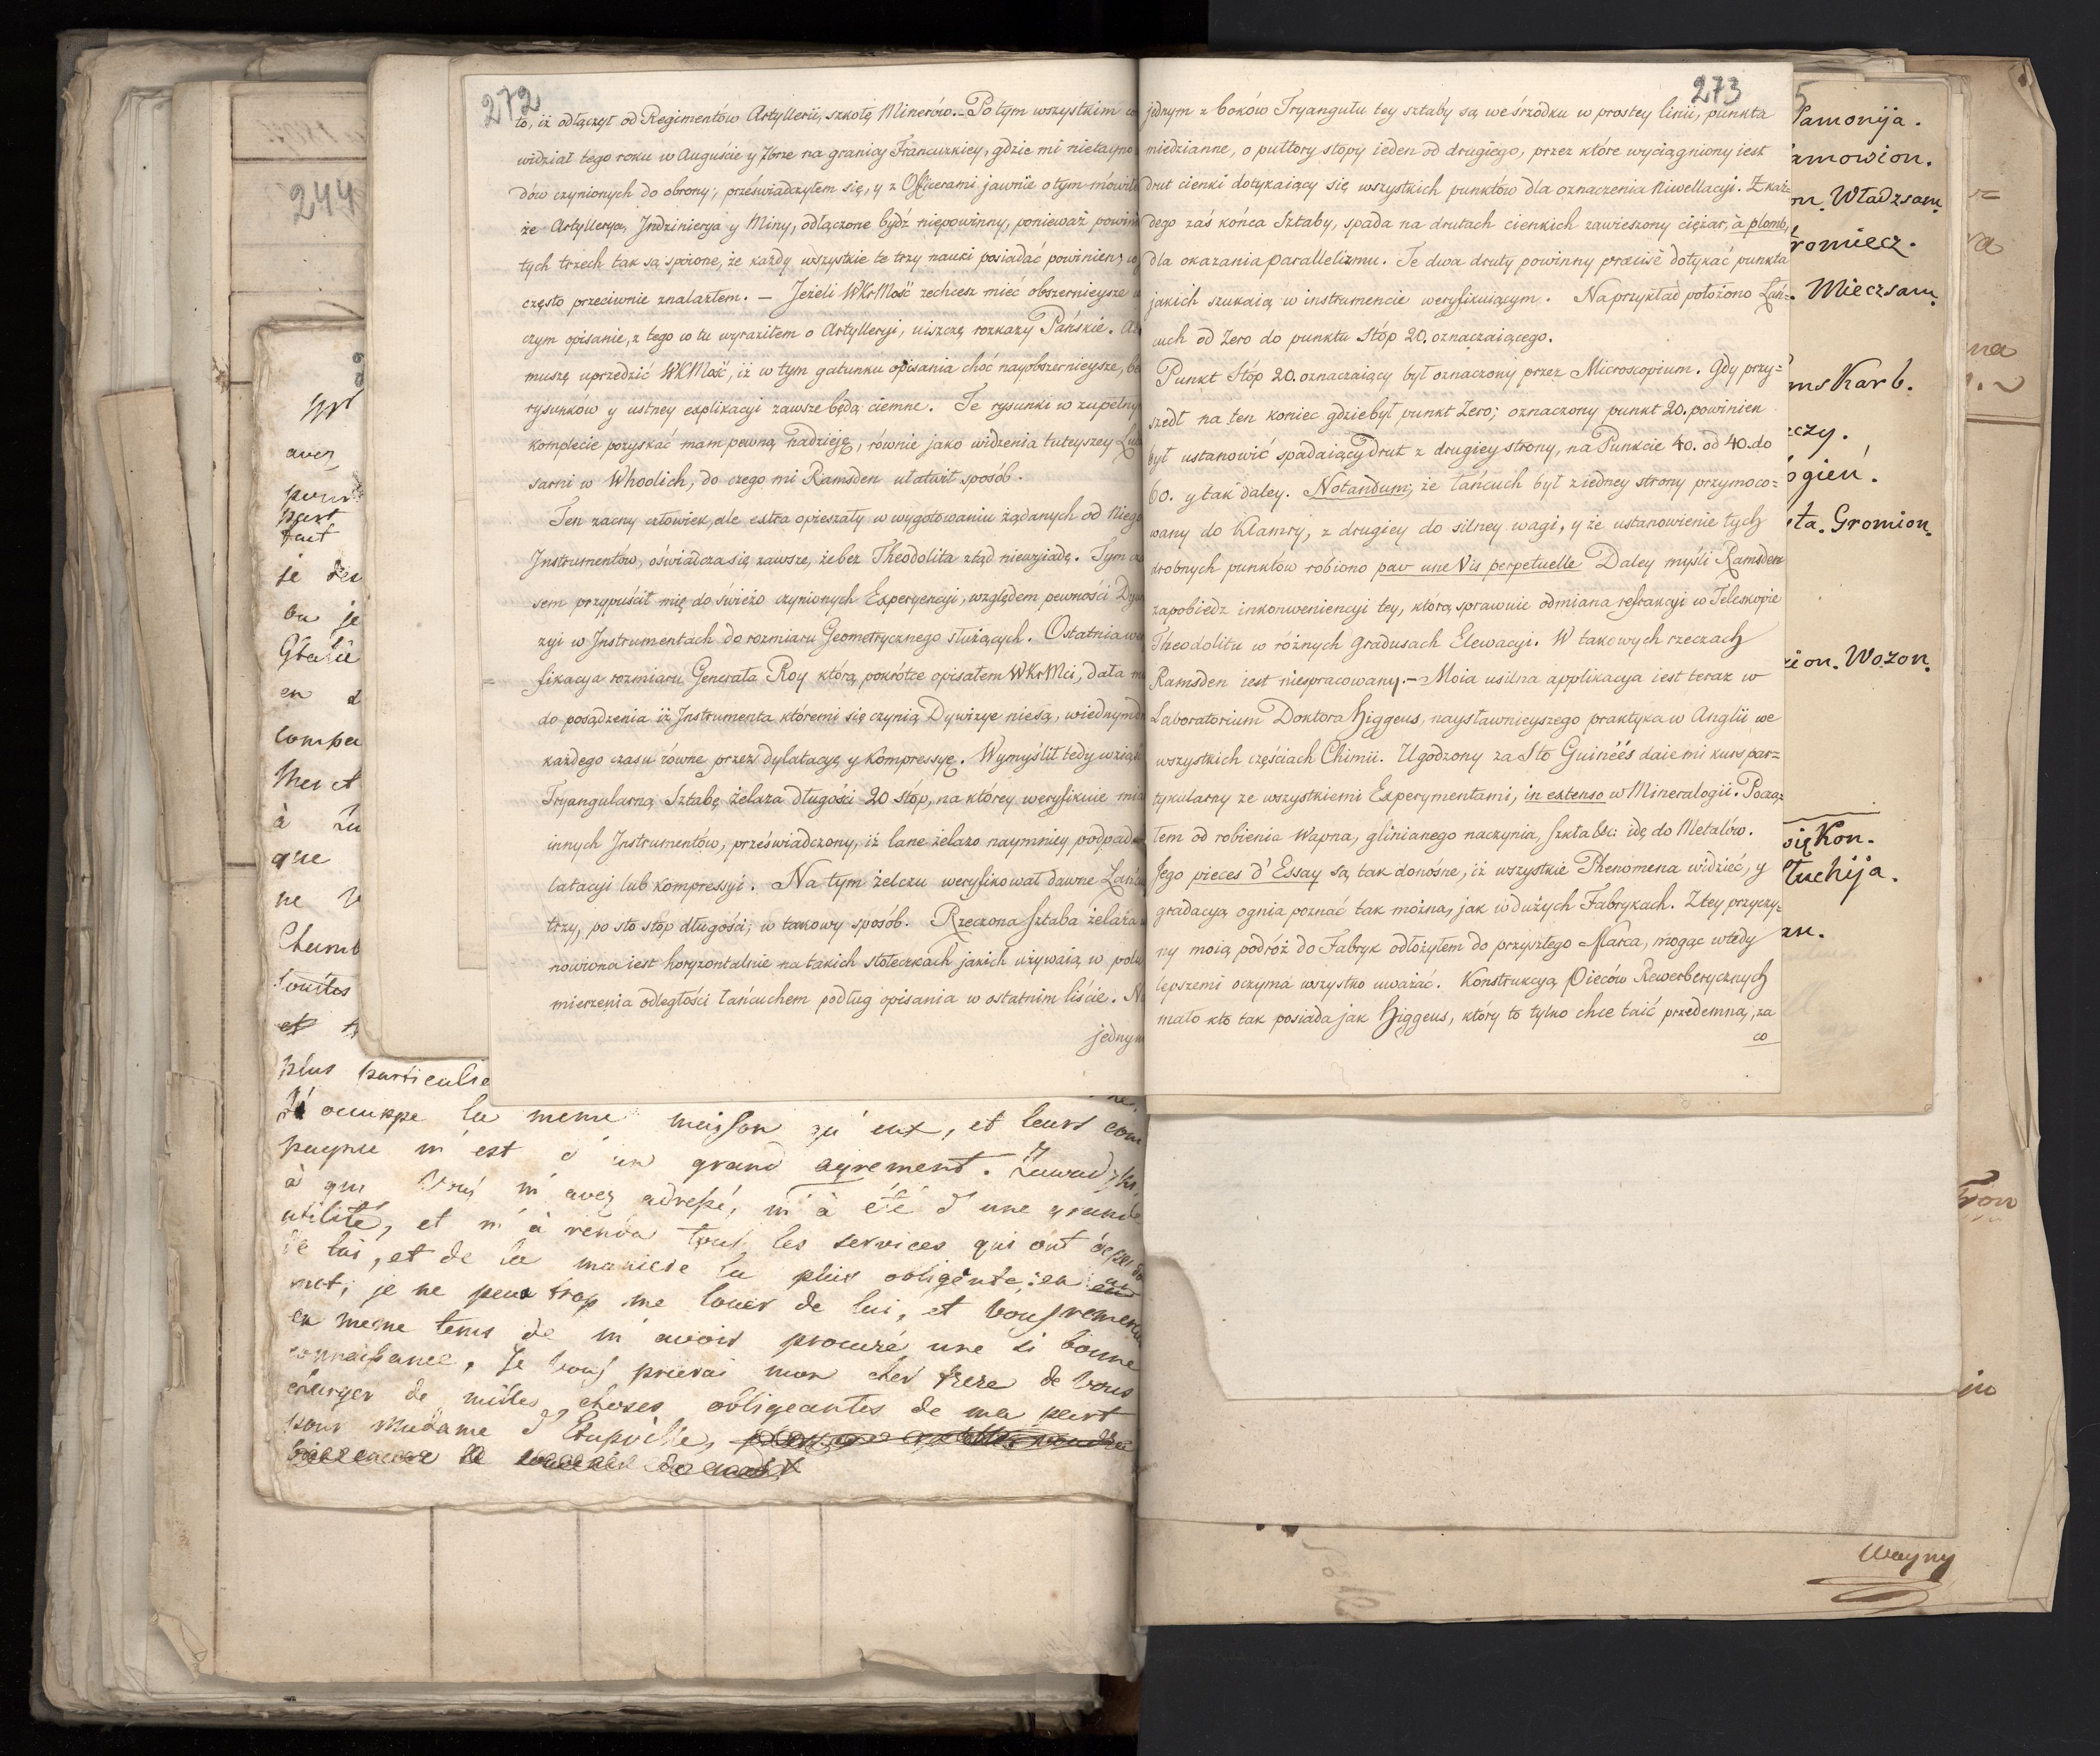 272
to, iż odłączył od Regimentów Artyllerii, szkołę Minerów. Po tym wszystkim
widział tego roku w Auguście y 7brze na granicy Francuzkiey, gdzie mi nietayno
dów czynionych do obrony; przeświadczyłem się, y z Officerami jawnie o tym mówiłe
że Artyllerya, Jndzinierya y Miny, odłączone bydź niepowinny, ponieważ powin
tych trzech tak są spoione, że każdy wszystkie te trzy nauki posiadać powinien,
często przeciwnie znalazłem. — Jeżeli WKrMość zechcesz mieć obszernieysze
czym opisanie, z tego co tu wyraziłem o Artylleryi, uiszczę rozkazy Pańskie.
muszę uprzedzić WKMość, iż w tym gatunku opisania choć nayobszernieysze,
rysunków y ustney explikacyi zawsze będą ciemne. Te rysunki w zupełny
komplecie pozyskać mam pewną nadzieję, równie jako widzenia tuteyszey
sarni w Whoolich, do czego mi Ramsden ułatwił sposób.
Ten zacny człowiek, ale extra opieszały w wygotowaniu żądanych od Niego
Jnstrumentów, oświadcza się zawsze, że bez Theodolita ztąd niewyiadę. Tym
sem przypuścił mię do świeżo czynionych Experyencyi, względem pewności
zyi w Jnstrumentach do rozmiaru Geometrycznego służących. Ostatnia
fikacya rozmiaru Generała Roy którą pokrótce opisałem WKrMci, dała
do posądzenia iż Jnstrumenta któremi się czynią Dywizye niesą, wiednym
każdego czasu równe przez dylatacyę y kompressyę. Wymyślił tedy wziąść
Tryangularną Sztabę żelaza długości 20 stóp, na którey weryfikuie
innych Jnstrumentów, przeświadczony, iż lane żelazo naymniey podpada
latacyi lub kompressyi. Na tym żelezu weryfikował dawne
trzy, po sto stóp długości; w takowy sposób. Rzeczona Sztaba żelaza
nowiona iest horyzontalnie na takich stołeczkach jakich używaią w
mierzenia odległości łańcuchem podług opisania w ostatnim liście.
jednym
273
jednym z boków Tryangułu tey sztaby są we śrzodku w prostey linii, punkta
miedzianne, o pułtory stopy ieden od drugiego, przez które wyciągniony iest
drut cienki dotykaiący się wszystkich punktów dla oznaczenia Niwellacyi. Z każ-
dego zaś końca Sztaby, spada na drutach cienkich zawieszony ciężar, à plomb,
dla okazania parallelizmu. Te dwa druty powinny præcisè dotykać punkta
jakich szukaią w instrumencie weryfikuiącym. Naprzykład położono Łań=
cuch od Zero do punktu stóp 20. oznaczaiącego.
Punkt Stóp 20. oznaczaiący był oznaczony przez Microscopium. Gdy przy=
szedł na ten koniec gdzie był punkt Zero; oznaczony punkt 20. powinien
był ustanowić spadaiący Drut z drugiey strony, na Punkcie 40. od 40. do
60. y tak daley. Notandum; że łańcuch był z iedney strony przymoco=
wany do Klamry, z drugiey do silney wagi, y że ustanowienie tych
drobnych punktów robiono par une Vis perpetuelle Daley myśli Ramsden
zapobiedz inkonweniencyi tey, którą sprawuie odmiana refrakcyi w Teleskopie
Theodolitu w różnych gradusach Elewacyi. W takowych rzeczach
Ramsden iest niespracowany. — Moia usilna applikacya iest teraz w
Laboratorium Doktora Higgeus, naysławnieyszego praktyka w Anglii we
wszystkich częściach Chimii. Ugodzony za Sto Guinéés daie mi kurs par=
tykularny ze wszystkiemi Experymentami, in extenso w Mineralogii. Począ=
łem od robienia Wapna, glinianego naczynia, szkła &c: idę do Metalów.
Jego pieces d'Essay są tak donośne, iż wszystkie Phenomena widzieć, y
gradacyą ognia poznać tak można, jak w dużych Fabrykach. Z tey przyczy=
ny moią podróż do Fabryk odłożyłem do przyszłego Marca, mogąc wtedy
lepszemi oczyma wszystko uważać. Konstrukcyą Pieców Rewerberycznych
mało kto tak posiada jak Higgeus, który to tylko chce taić przedemną, za
co
244
avez
part
je
en
à
que
ne
toutes
plus particulie
occuppe la meme maison qu'eux, et leurs com
pagnie m'est d'un grand agrement.
à qui Vous m'avez adressé, m'à été d'une grande
utilité, et m'à rendu tous les services qui ont
de lui, et de la maniere la plus obligente: en un
mot; je ne peux trop me louer de lui, et vous remerci
en meme tems de m'avoir procuré une si bonne
connaissance, Je vous prierai mon cher frere de vous
charger de milles choses obligeantes de ma part
pour Madame d'
amowion.
Władzsam.
romiecz.
Mieczsam.
Karb.
czy.
ta. Gromion.
ion. Wozon.
się Kon.
Tuchija.